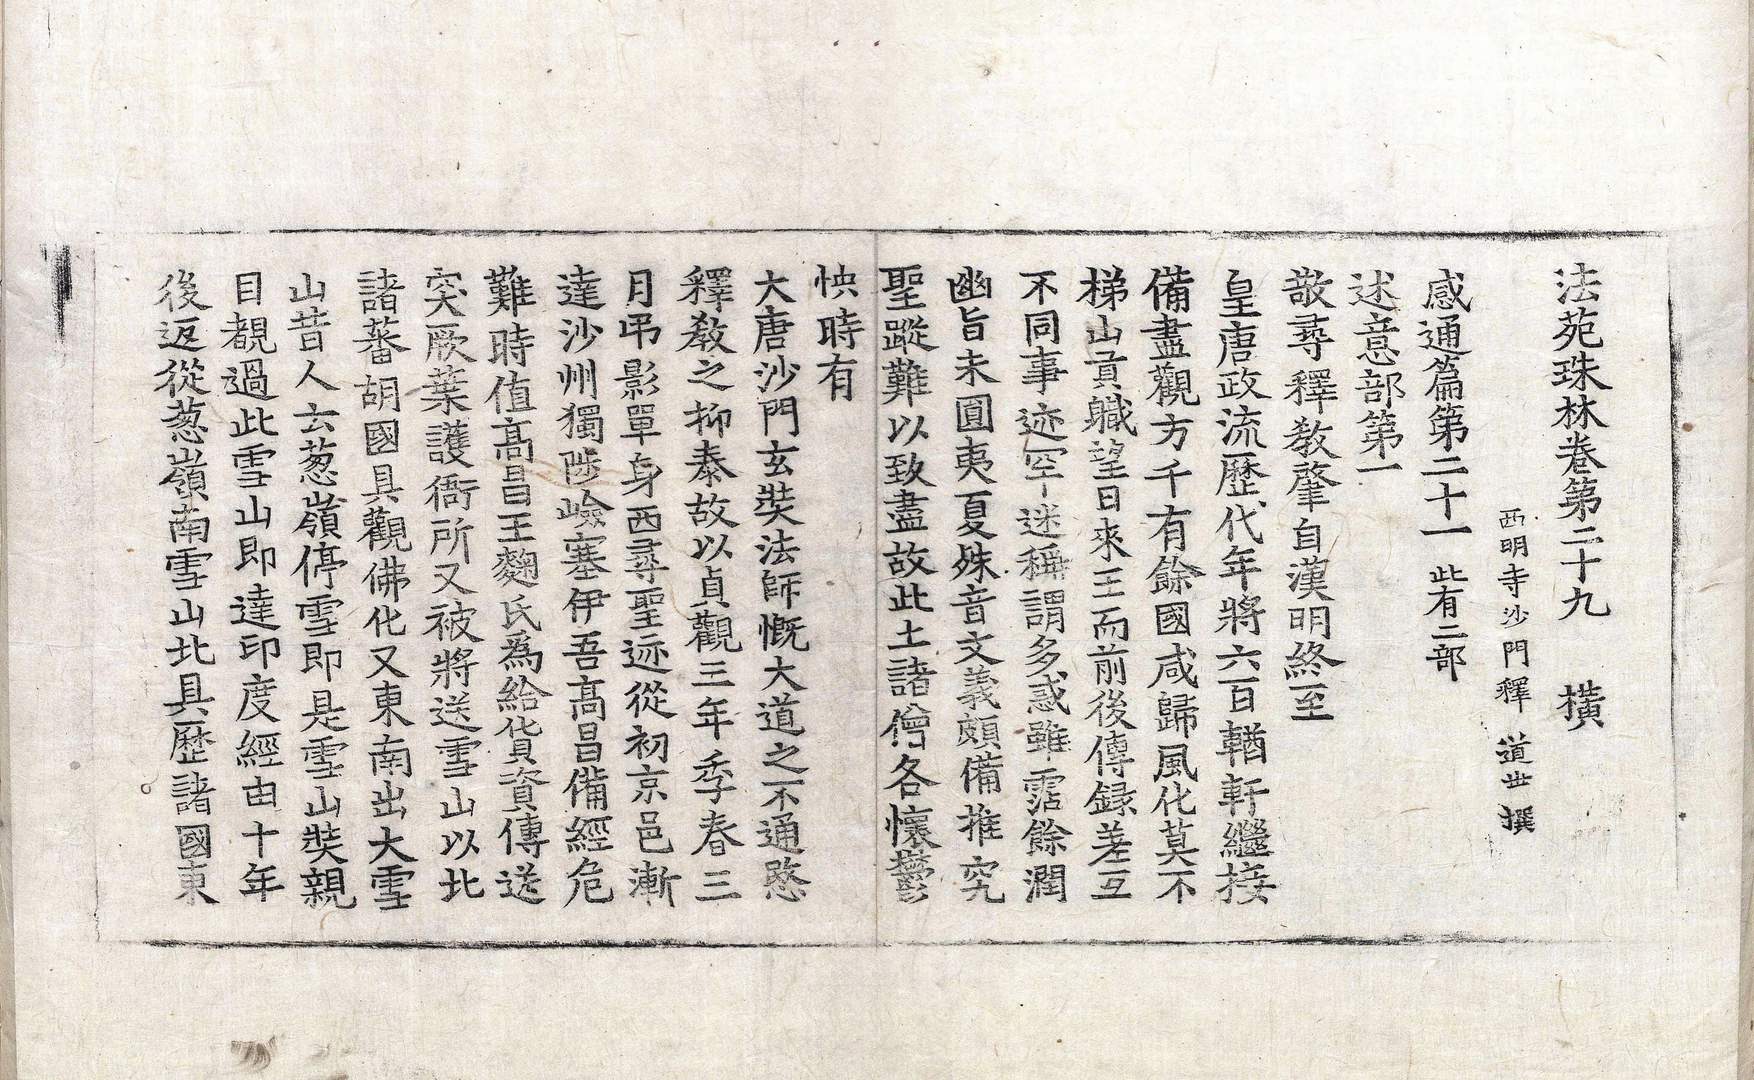 法苑珠林卷第二十九　橫
西明寺沙門釋　道世　撰
感通篇第二十一　此有二部
述意部第一
敬尋釋教肇自漢明終至
皇唐政流歷代年將六百輶軒繼接
備盡觀方千有餘國咸歸風化莫不
梯山貢職望日來王而前後傳録差互
不同事迹罕述稱謂多惑雖霑餘潤
幽旨未圓夷夏殊音文義頗備推究
聖蹤難以致盡故此土諸僧各懷鬱
怏時有
大唐沙門玄奘法師慨大道之不通愍
釋教之抑泰故以貞觀三年季春三
月吊影單身西尋聖迹從初京邑漸
達沙州獨陟嶮塞伊吾高昌備經危
難時值高昌王麴氏爲給貨資傳送
突厥葉護衙所又被將送雪山以北
諸蕃胡國具觀佛化又東南出大雪
山昔人云葱嶺停雪即是雪山奘親
目覩過此雪山即達印度經由十年
後返從葱嶺南雪山北具歷諸國東